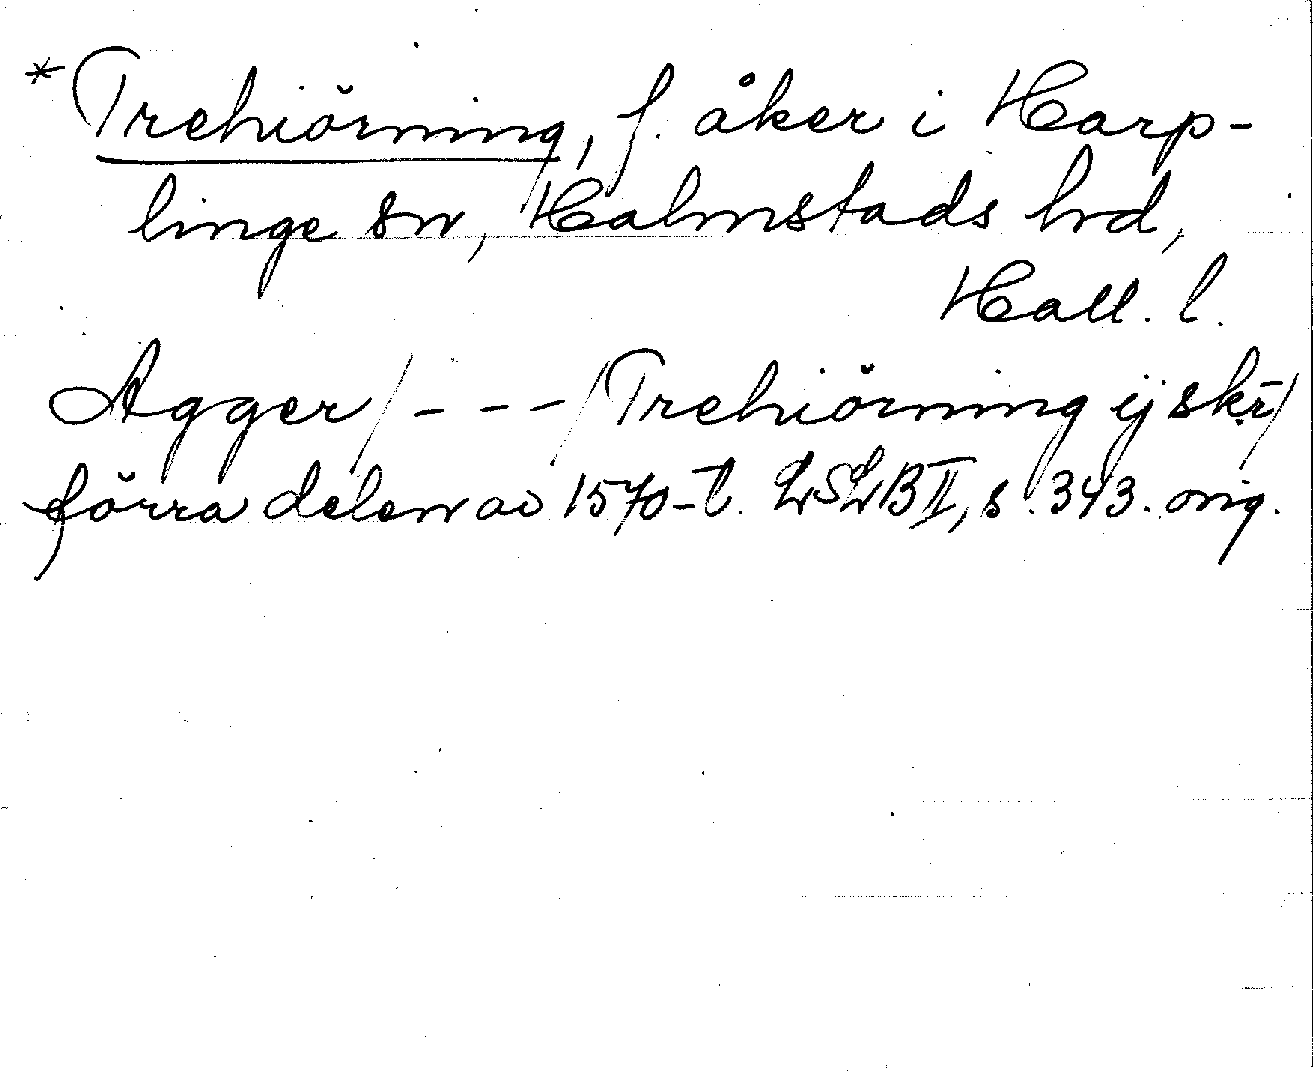 *Trehiörning, f. åker i Harp-
linge sn, Halmstads hrd,
Hall. l.
Agger/ - - - /Trehiörning ij skr̄/
förra delen av 1570-t. LSLB II, s. 343. orig.